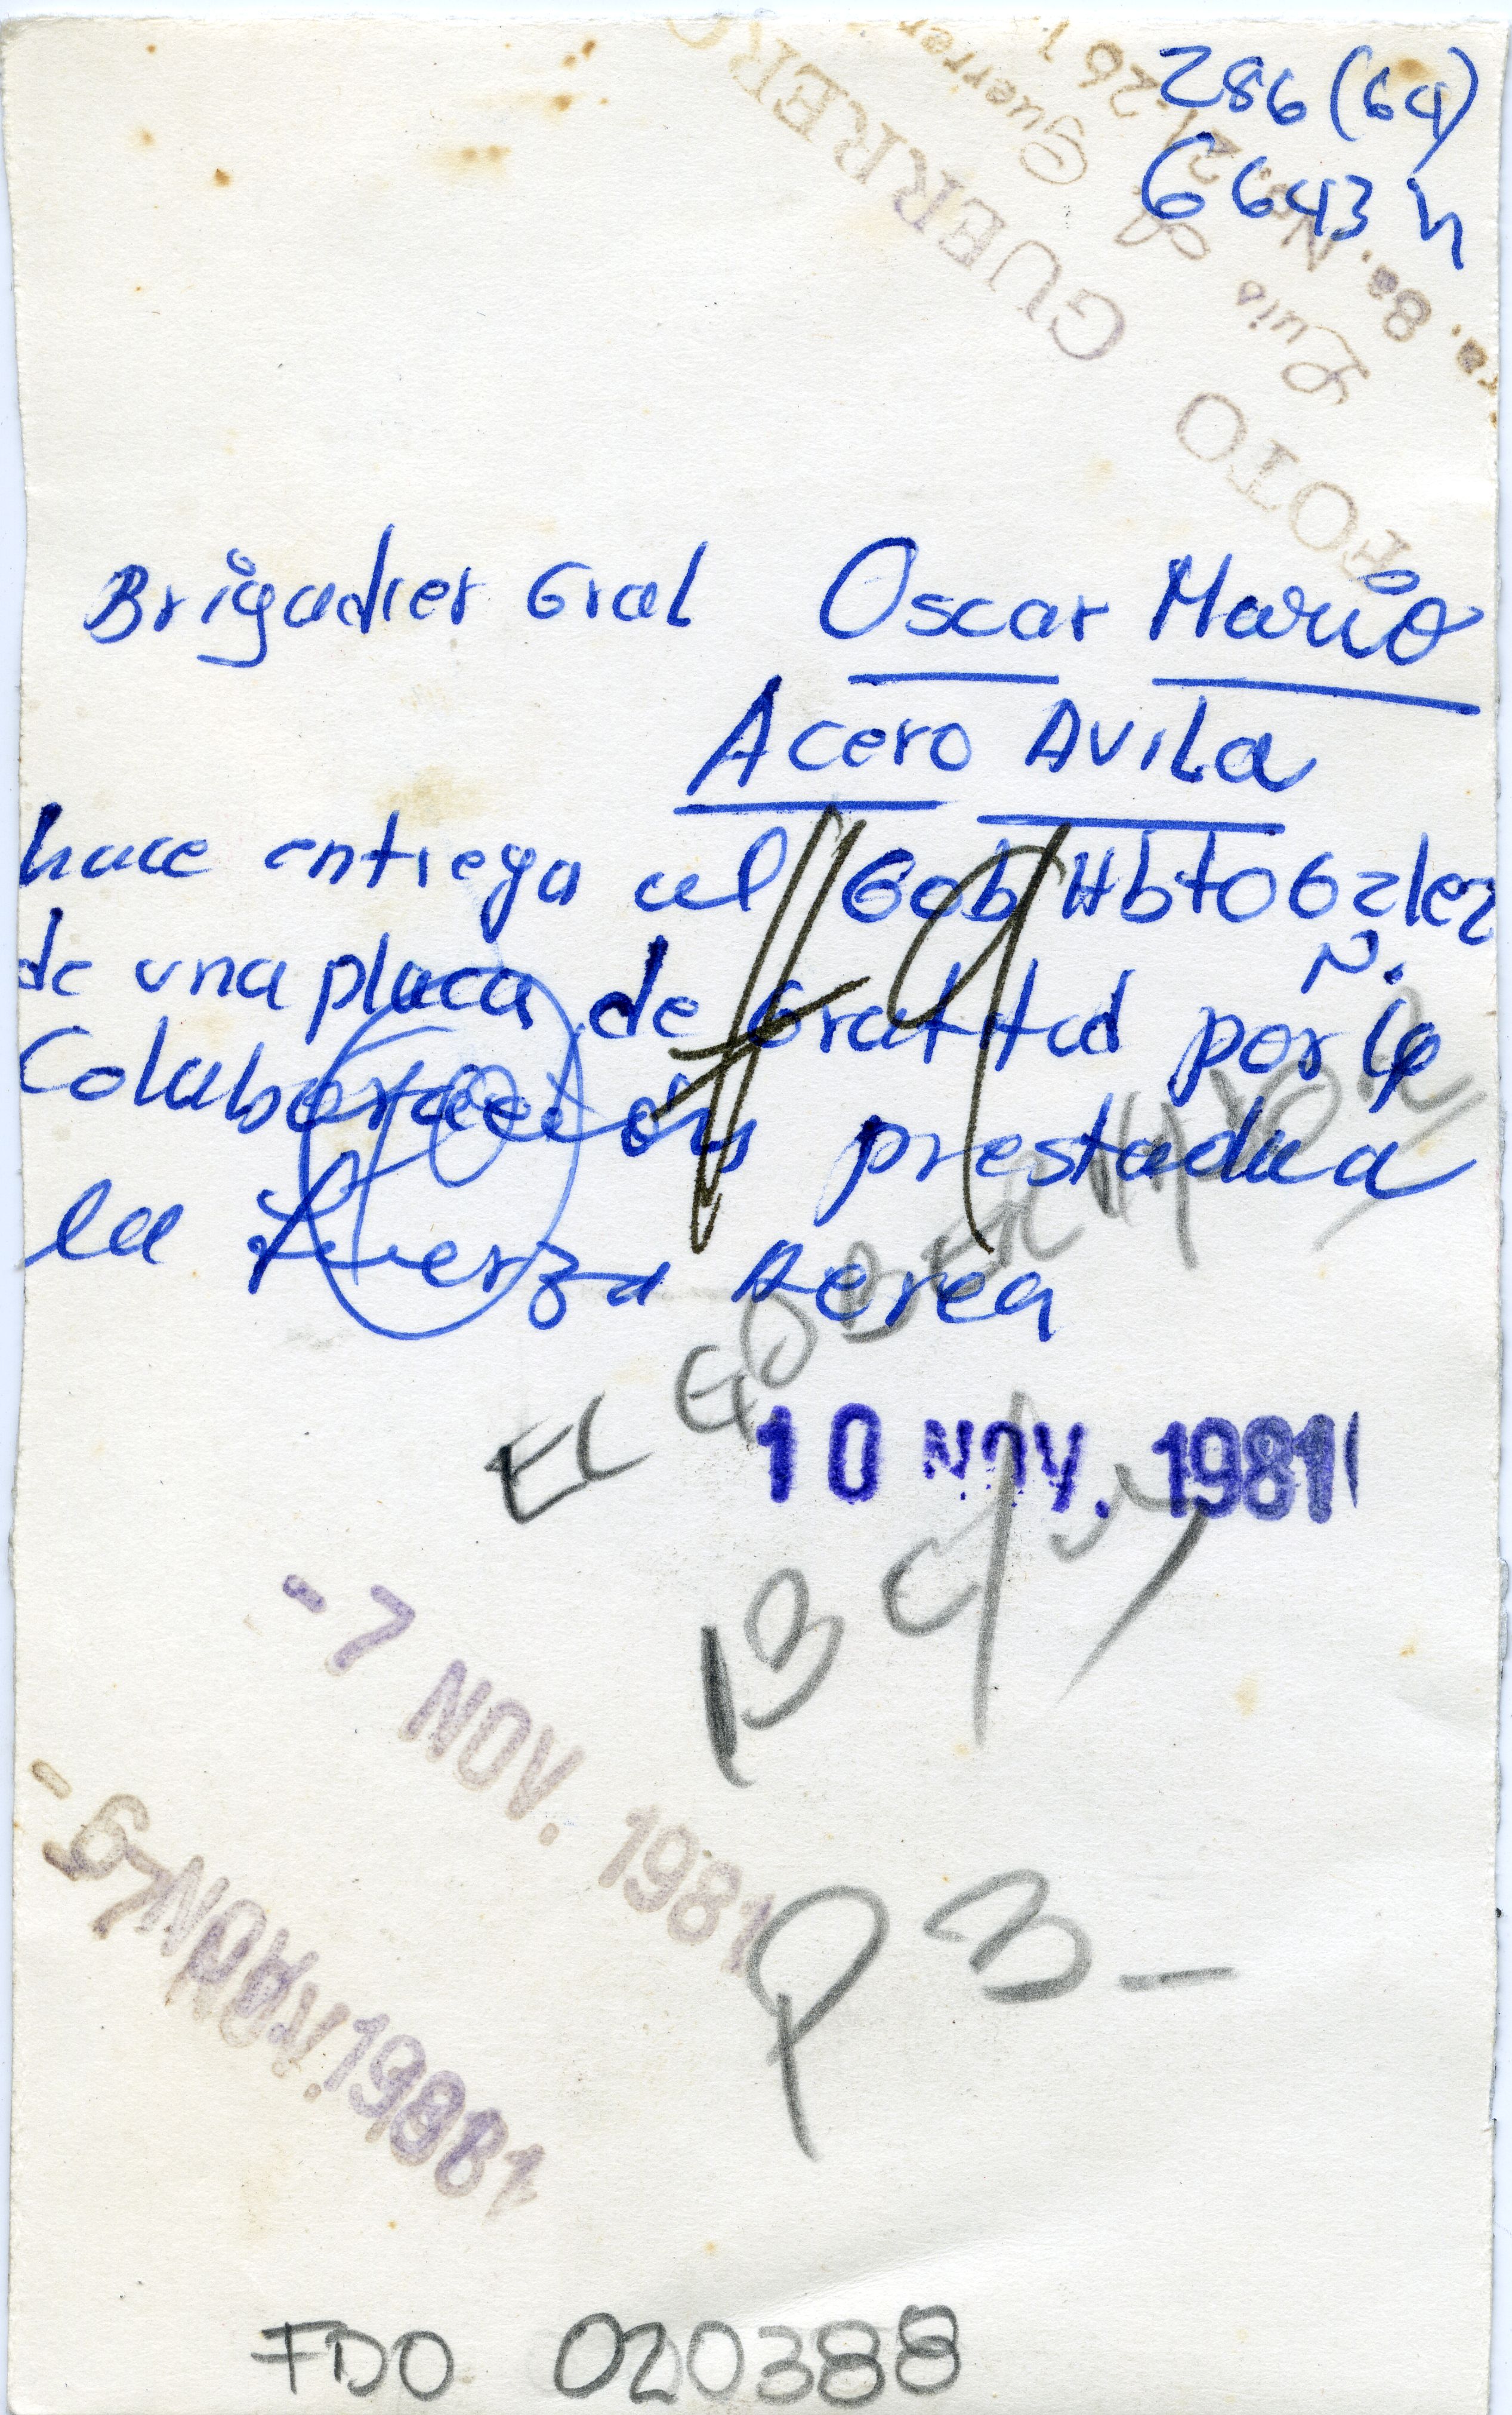 286 (64)
6643 h
FOTO GUERRERO
Luis A. Guerrero
Brigadier Gral Oscar Mario
Acero Avila
hace entrega al Gob Hbto Gzlez
N.
de una placa de Gratitud por la
Colaboración prestada a
la Fuerza Aerea
EL GOBERNADOR
10 NOV. 1981
- 7 NOV. 1981
- 6 NOV. 1981
P 3 -
FDO 020388